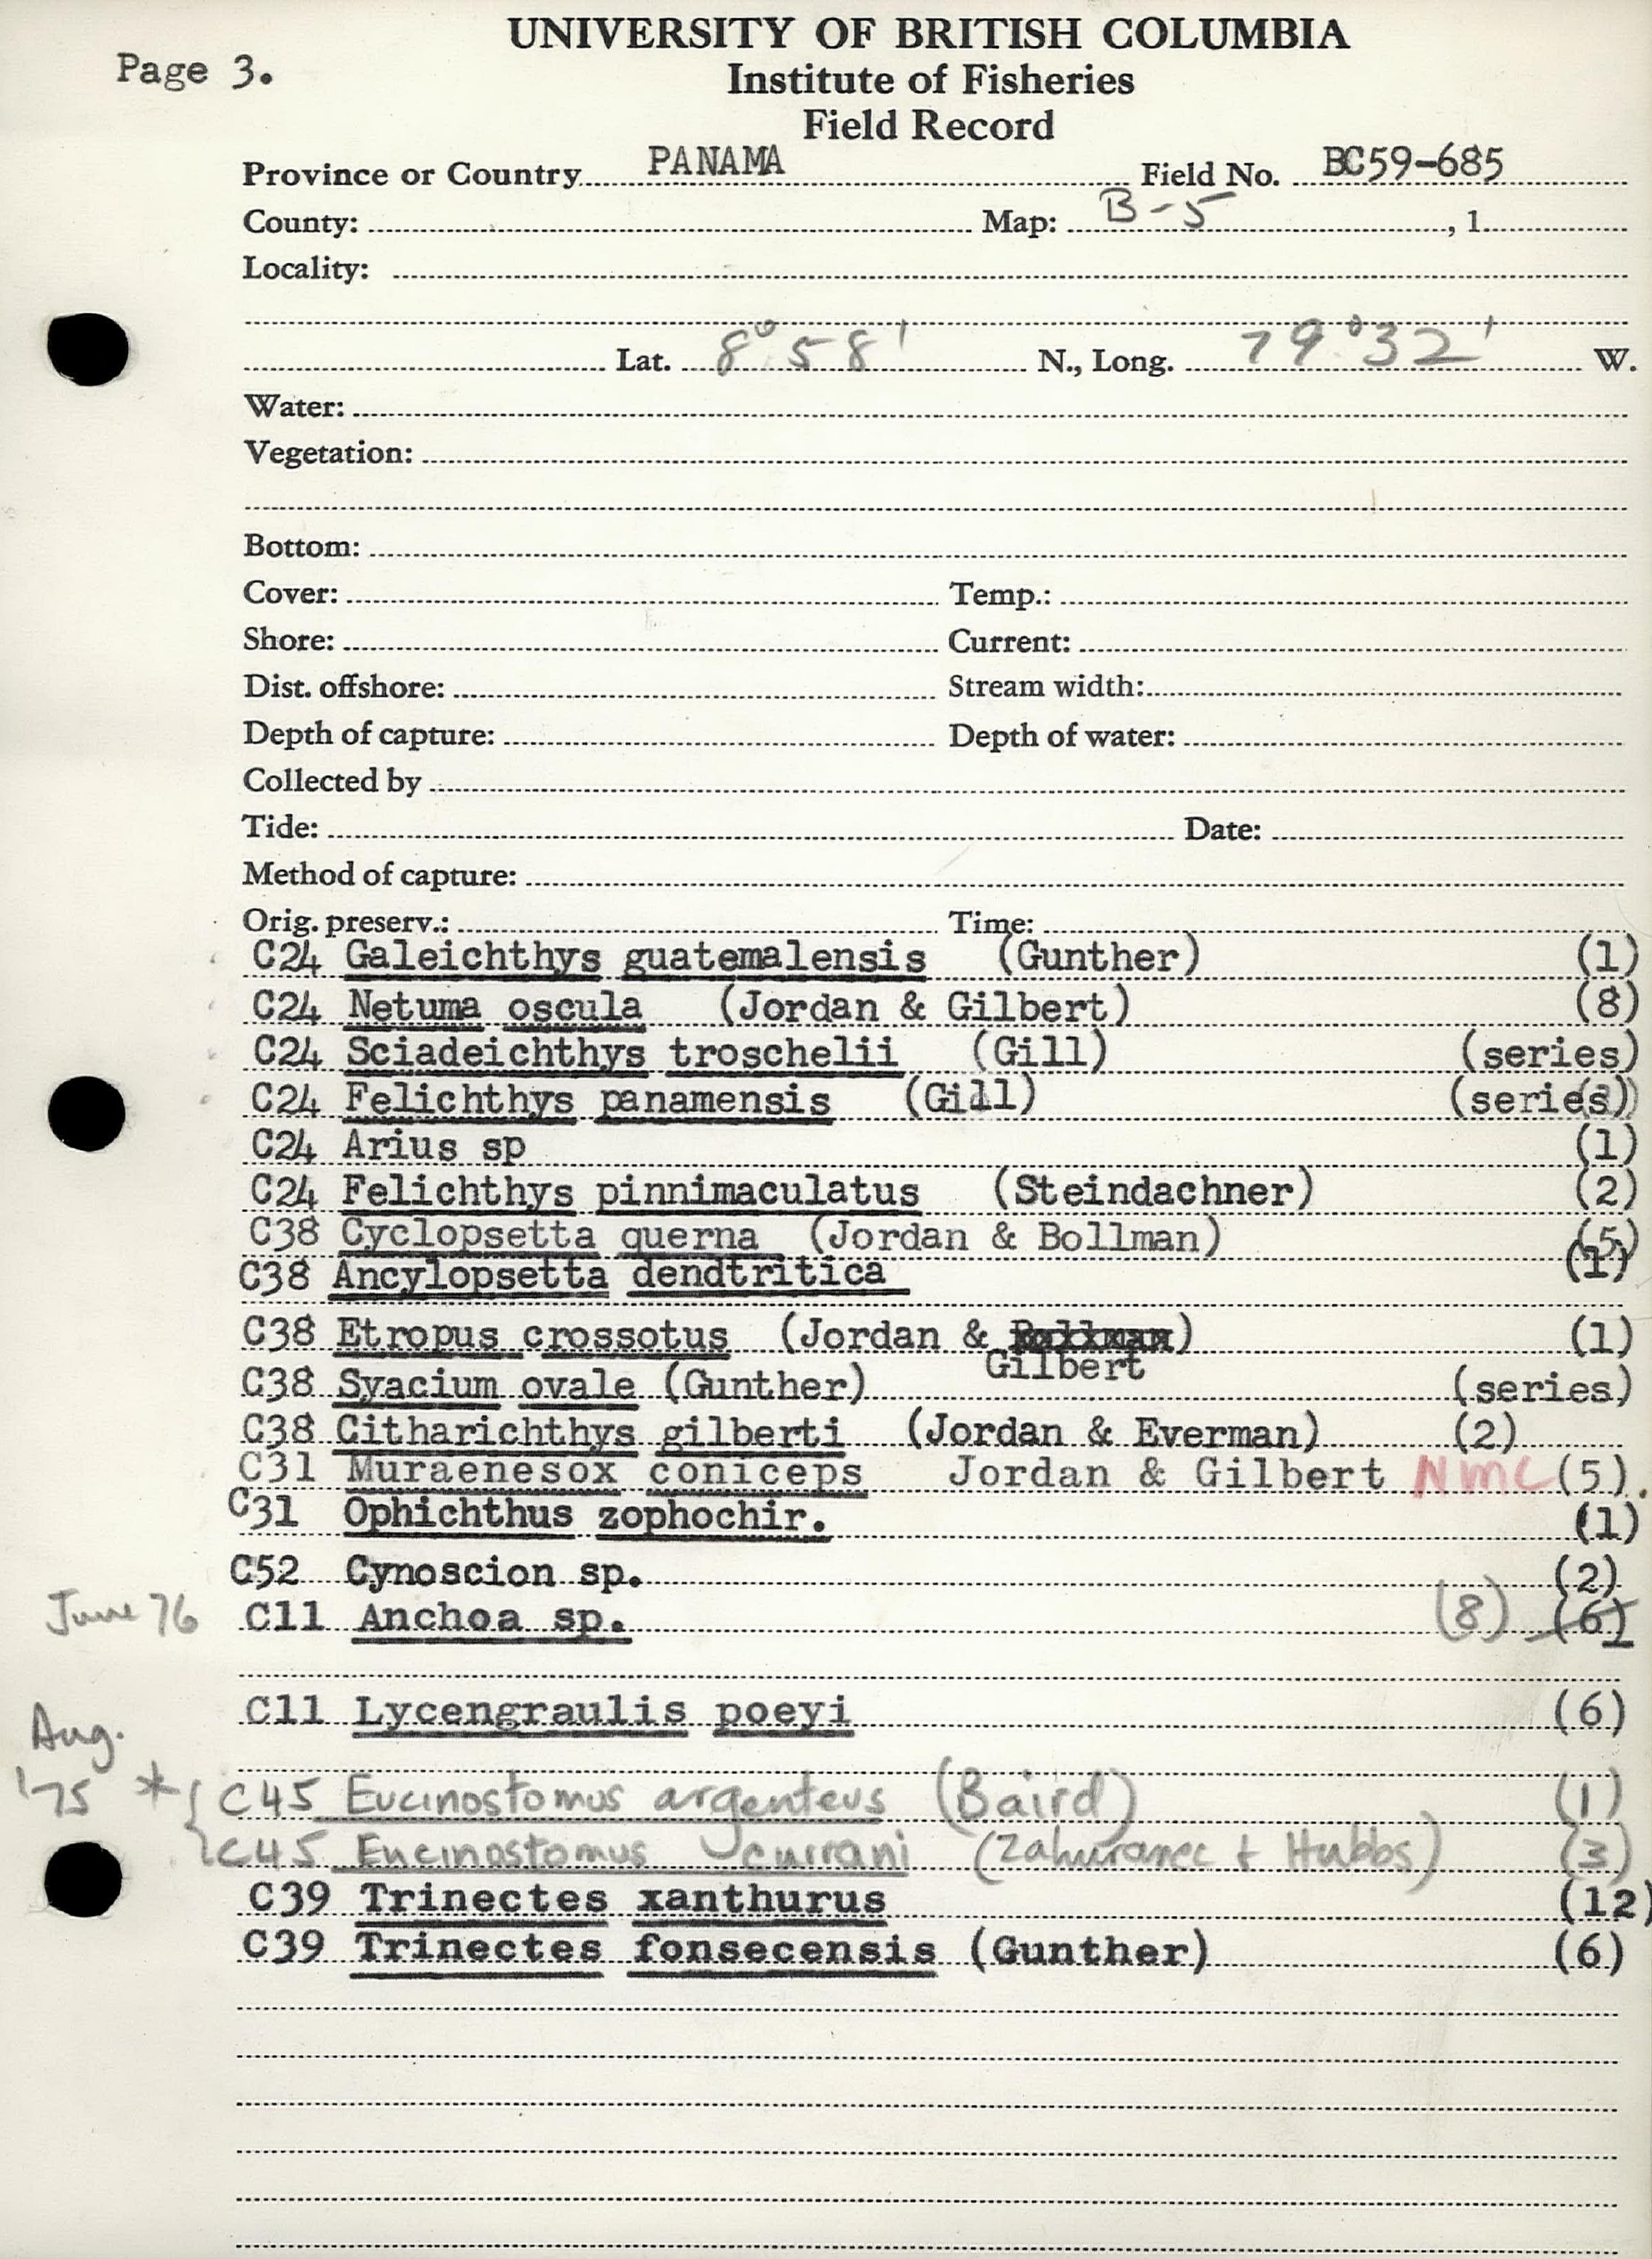 UNIVERSITY OF BRITISH COLUMBIA
Page 3.
Institute of Fisheries
Field Record
Province or Country PANAMA Field No. BC59-685
County: Map: B-5, 1
Locality:
Lat. 8°58' N., Long. 79°32' W.
Water:
Vegetation:
Bottom:
Cover: Temp.:
Shore: Current:
Dist. offshore: Stream width:
Depth of capture: Depth of water:
Collected by
Tide: Date:
Method of capture:
Orig. preserv.: Time:
C24 Galeichthys guatemalensis (Gunther) (1)
C24 Netuma oscula (Jordan & Gilbert) (8)
C24 Sciadeichthys troschelii (Gill) (series)
C24 Felichthys panamensis (Gill) (series)
C24 Arius sp (1)
C24 Felichthys pinnimaculatus (Steindachner) (2)
C38 Cyclopsetta querna (Jordan & Bollman) (5)
C38 Ancylopsetta dendtritica (1)
C38 Etropus crossotus (Jordan & Bollman) (1)
Gilbert
C38 Syacium ovale (Gunther) (series)
C38 Citharichthys gilberti (Jordan & Everman) (2)
C31 Muraenesox coniceps Jordan & Gilbert NMC (5).
C31 Ophichthus zophochir. (1)
C52 Cynoscion sp. (2)
June 76 C11 Anchoa sp. (8) (6)
C11 Lycengraulis poeyi (6)
Aug.
'75 * { C45 Eucinostomus argenteus (Baird) (1)
C45 Eucinostomus currani (Zahuranec + Hubbs) (3)
C39 Trinectes xanthurus (12)
C39 Trinectes fonsecensis (Gunther) (6)